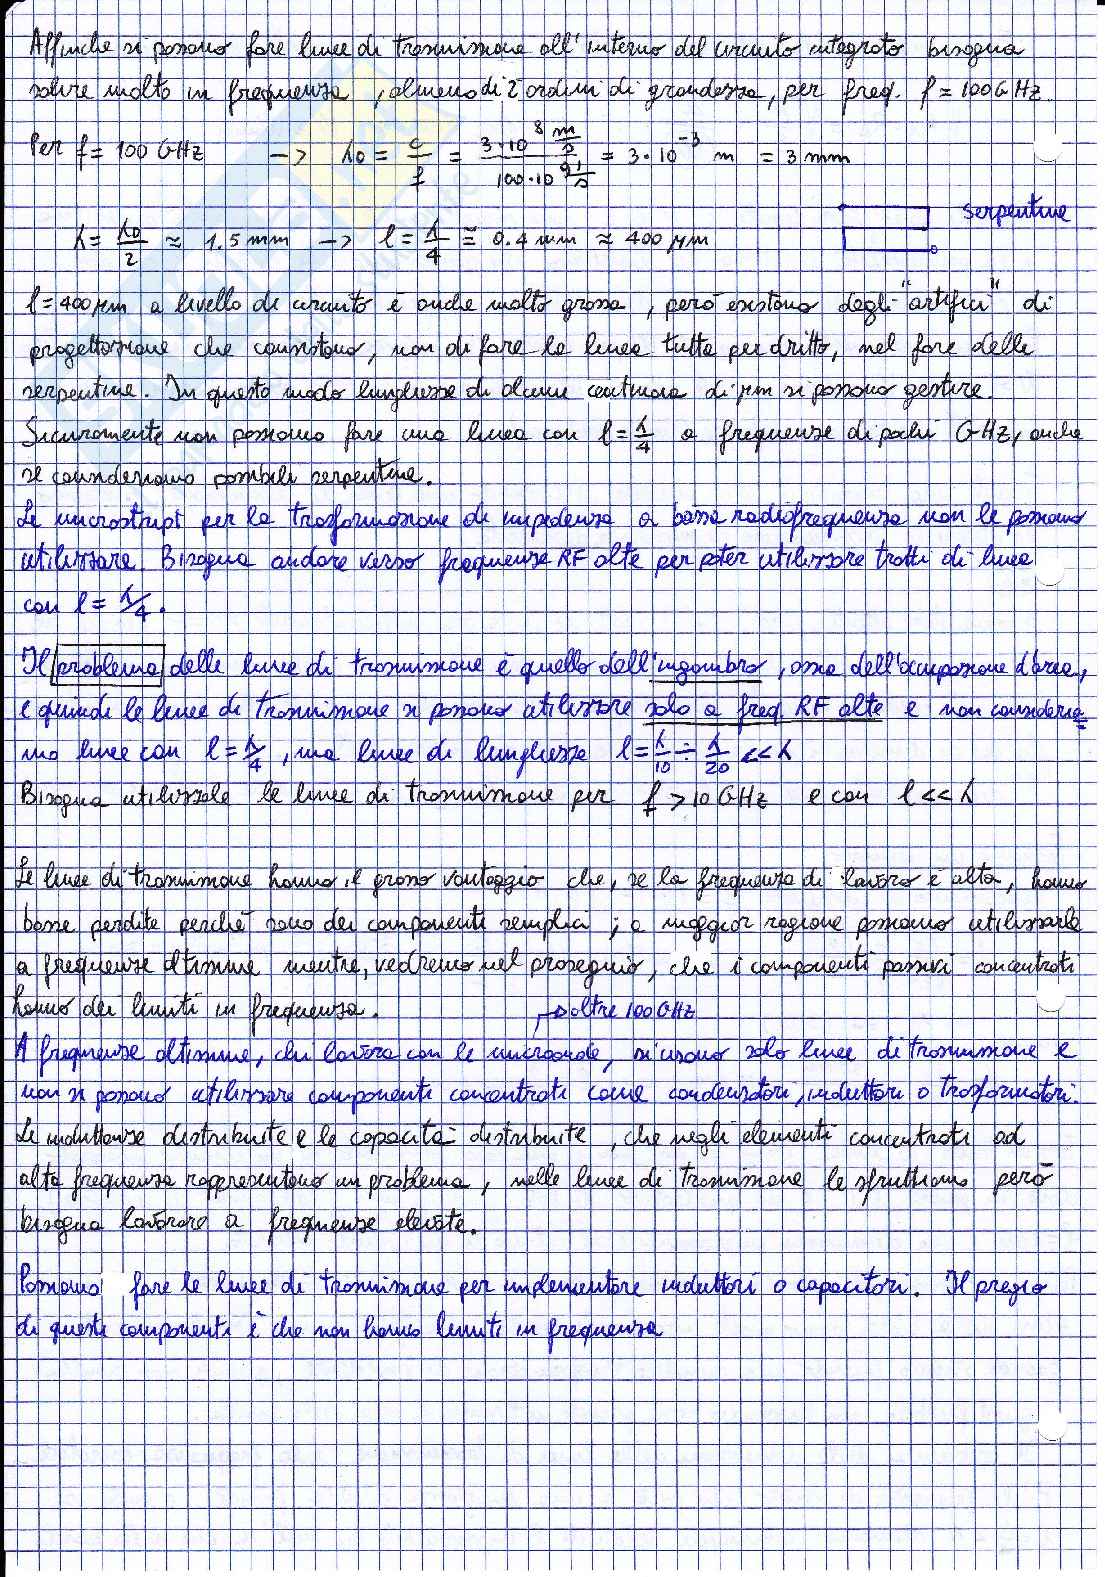 Affinché si possano fare linee di trasmissione all'interno del circuito integrato bisogna
salire molto in frequenza, almeno di 2 ordini di grandezza, per freq. f = 100 GHz.
Per f = 100 GHz -> λ0 = c/f = 3·10^8 m/s / 100·10^9 1/s = 3·10^-3 m = 3 mm
λ = λ0/2 ≈ 1.5 mm -> l = λ/4 ≅ 0.4 mm ≈ 400 μm
serpentine
l = 400 μm a livello di circuito è anche molto grossa, però esistono degli "artifici" di
progettazione che consistono, non di fare la linea tutta per dritto, nel fare delle
serpentine. In questo modo lunghezze di alcune centinaia di μm si possono gestire.
Sicuramente non possiamo fare una linea con l = λ/4 a frequenze di pochi GHz, anche
se consideriamo possibili serpentine.
Le microstrip per la trasformazione di impedenza a bassa radiofrequenza non le possiamo
utilizzare. Bisogna andare verso frequenze RF alte per poter utilizzare tratti di linea
con l = λ/4.
Il problema delle linee di trasmissione è quello dell'ingombro, ossia dell'occupazione d'area,
e quindi le linee di trasmissione si possono utilizzare solo a freq. RF alte e non consideria=
mo linee con l = λ/4, ma linee di lunghezza l = λ/10 ÷ λ/20 << λ
Bisogna utilizzale le linee di trasmissione per f > 10 GHz e con l << λ
Le linee di trasmissione hanno il grosso vantaggio che, se la frequenza di lavoro è alta, hanno
basse perdite perché sono dei componenti semplici; a maggior ragione possiamo utilizzarle
a frequenze altissime mentre, vedremo nel proseguio, che i componenti passivi concentrati
hanno dei limiti in frequenza.
-> oltre 100 GHz
A frequenze altissime, chi lavora con le microonde, si usano solo linee di trasmissione e
non si possono utilizzare componenti concentrati come condensatori, induttori o trasformatori.
Le induttanze distribuite e le capacità distribuite, che negli elementi concentrati ad
alta frequenza rappresentano un problema, nelle linee di trasmissione le sfruttiamo però
bisogna lavorare a frequenze elevate.
Possiamo fare le linee di trasmissione per implementare induttori o capacitori. Il pregio
di questi componenti è che non hanno limiti in frequenza